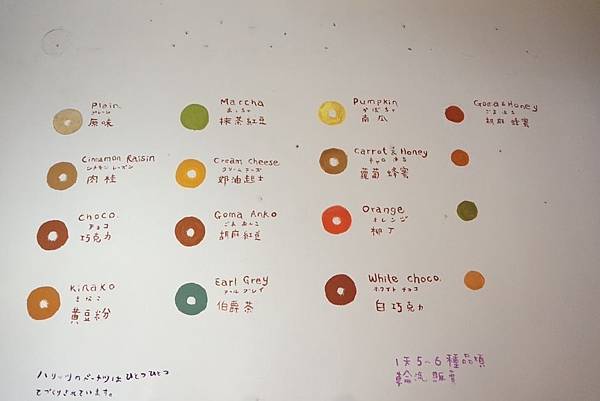 Plain
プレーン
原味
Maccha
まっちゃ
抹茶紅豆
Pumpkin
かぼちゃ
南瓜
Goma&Honey
胡麻蜂蜜
Cinnamon Raisin
シナモンレーズン
肉桂
Cream Cheese
クリームチーズ
奶油起士
Carrot Honey
蘿蔔蜂蜜
Choco.
チョコ
巧克力
Goma Anko
ごまあんこ
胡麻紅豆
Orange
オレンジ
柳丁
Kinako
きなこ
黃豆粉
Earl Grey
アールグレイ
伯爵茶
White Choco.
ホワイトチョコ
白巧克力
ハリーツのベーグルはひとつひとつ
てづくりされています。
1天5~6種品項
輪流販賣